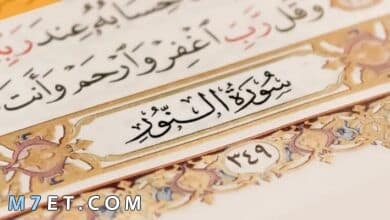 حِسَابُهُۥ عِندَ رَبِّهِ
وَقُل رَّبِّ ٱغْفِرْ وَٱرْحَمْ وَأَنتَ
سُورَةُ النُّورِ
٣٤٩
M7ET.COM